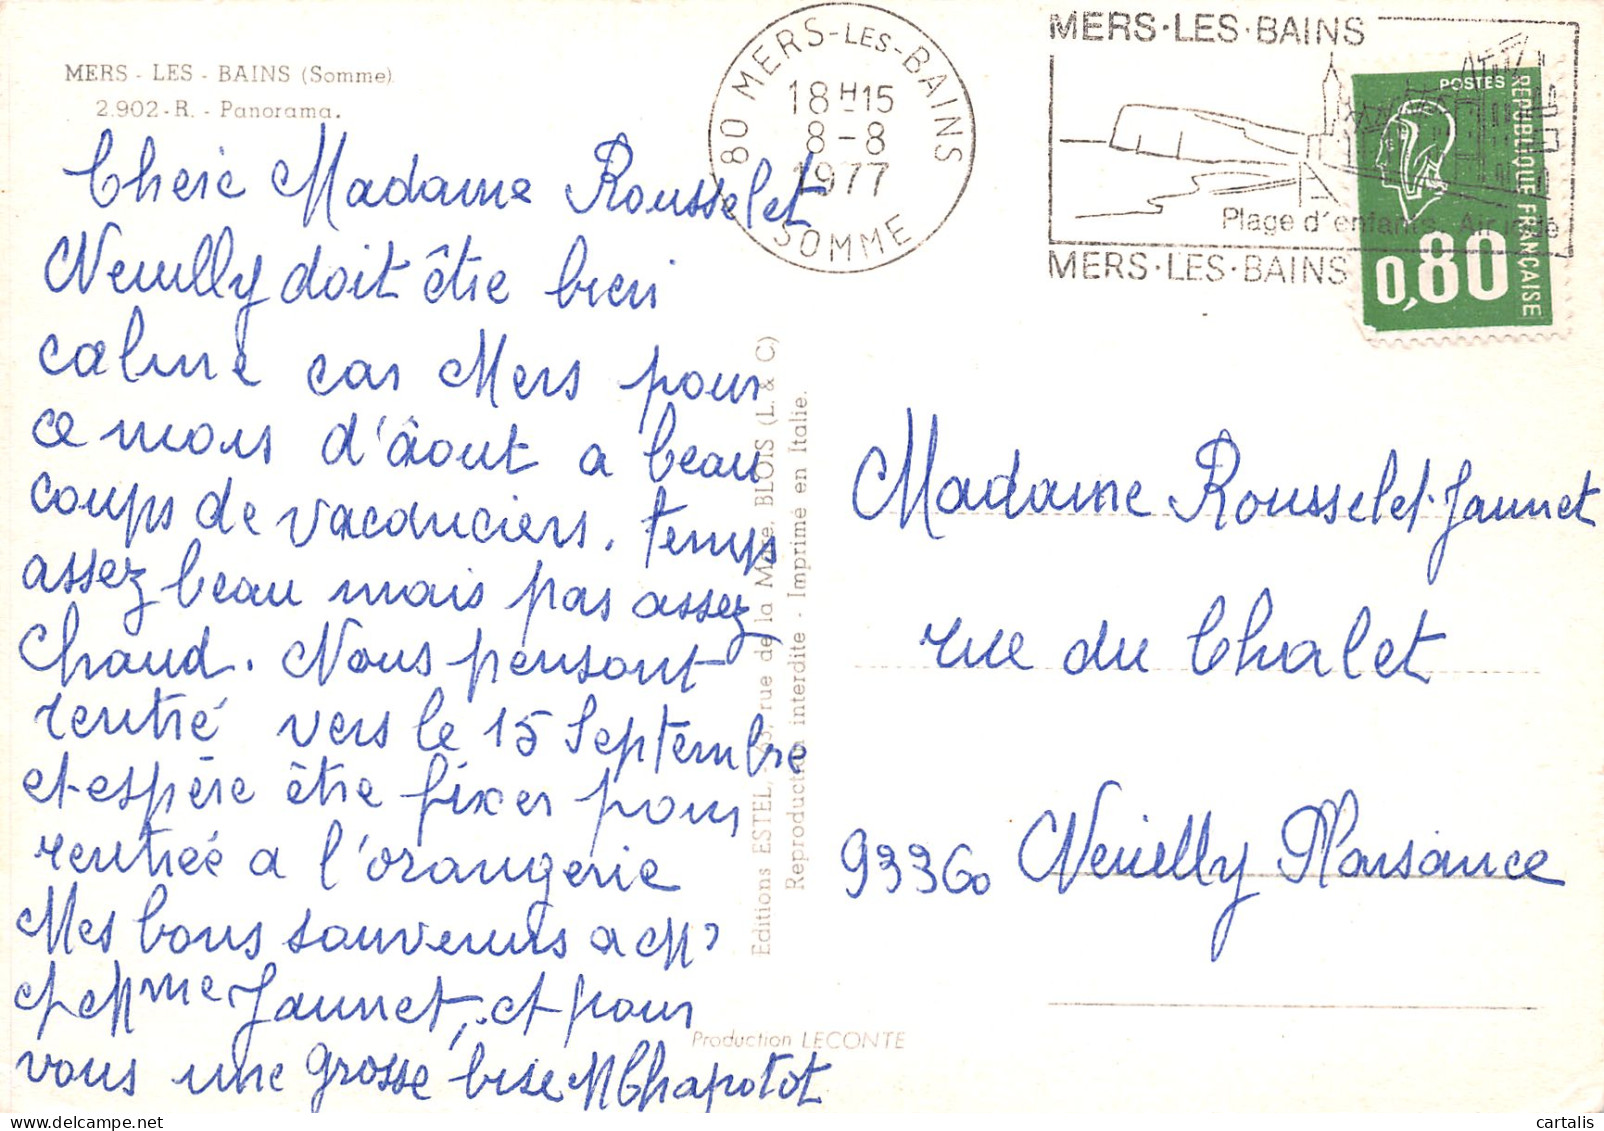 MERS - LES - BAINS (Somme)
2.902-R. - Panorama.
80 MERS-LES-BAINS
18H15
8-8
1977
SOMME
MERS·LES·BAINS
Plage d'enfants. Air iodé
MERS·LES·BAINS
POSTES
REPUBLIQUE FRANÇAISE
0,80
Cherie Madame Rousselet
Neuilly doit être bien
calme car Mers pour
ce mois d'âout a beau
coups de vacanciers. temps
assez beau mais pas assez
chaud. Nous pensont
rentré vers le 15 Septembre
et espère être fixer pour
rentrée a l'orangerie
Mes bons souvenirs a Mr
et Mme Jaunet, et pour
vous une grosse bise M Chapotot
Editions ESTEL, 63, rue de la Mare, BLOIS (L. & C)
Reproduction interdite - Imprimé en Italie.
Production LECONTE
Madame Rousselet-Jaunet
rue du Chalet
93360 Neuilly Plaisance
cartalis
delcampe.net